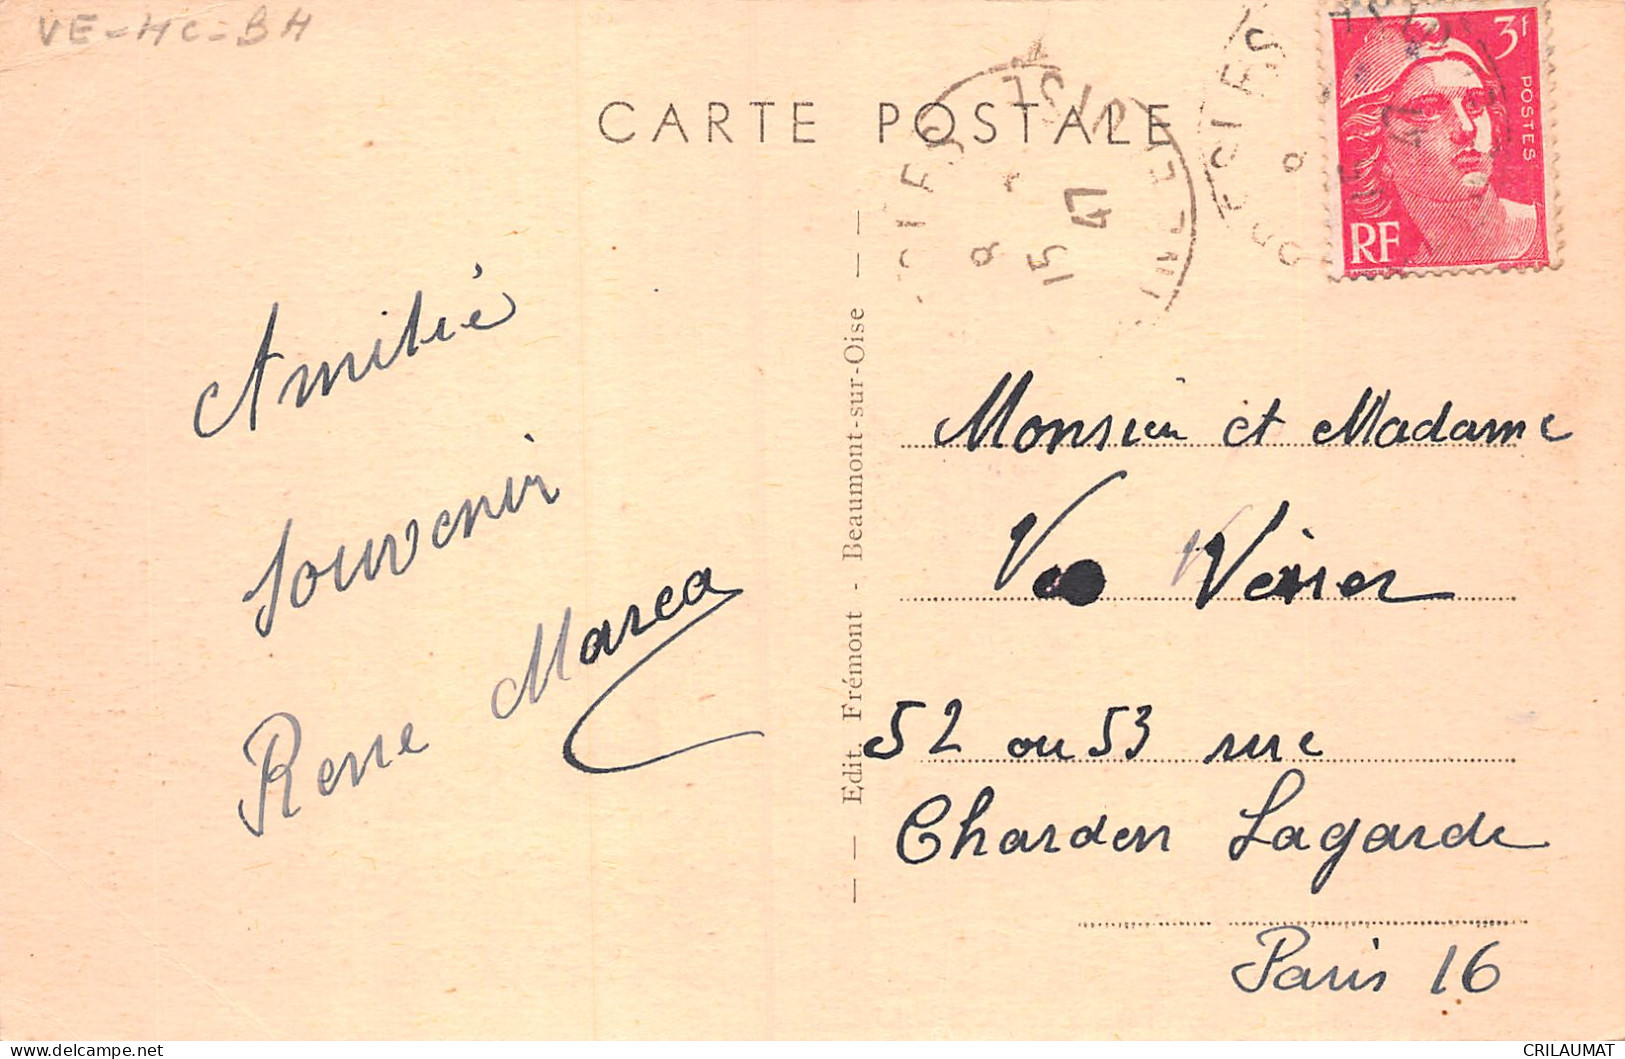 VE-HC-BH
CARTE POSTALE
3F
POSTES
RF
15
47
Amitié
Souvenir
Rene Marea
Edit. Frémont - Beaumont-sur-Oise
Monsieur et Madame
52 ou 53 rue
Charden Lagarde
Paris 16
CRILAUMAT